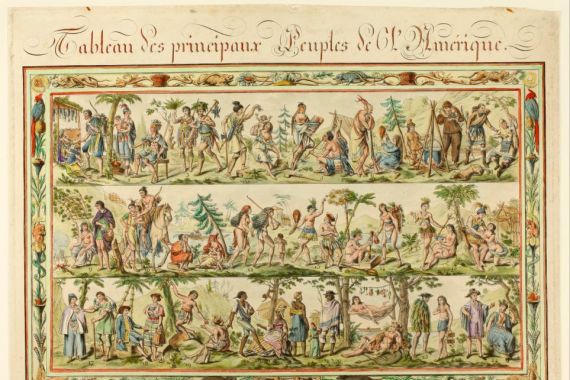 Tableau des principaux Peuples de l'Amérique.